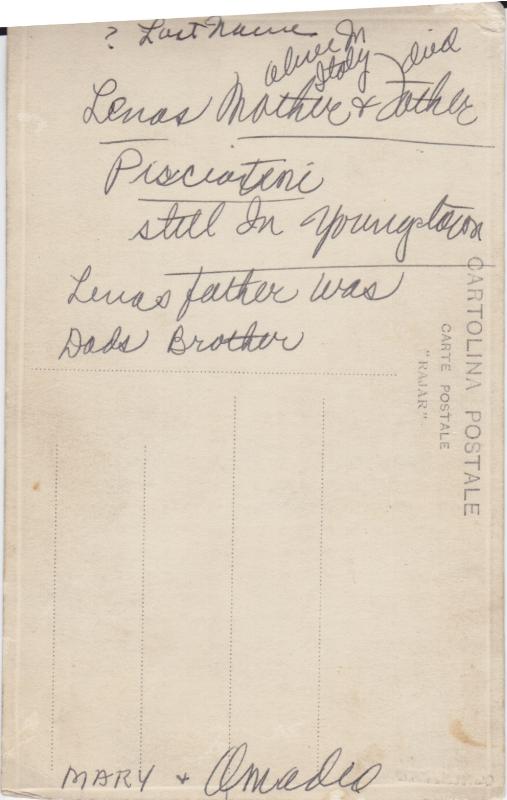 ? Last Name
alive In
Italy died
Lenas Mother & Father
Pisciatini
still In Youngstown
Lenas father was
Dads Brother
CARTOLINA POSTALE
CARTE POSTALE
"RAJAR"
MARY + Amadeo